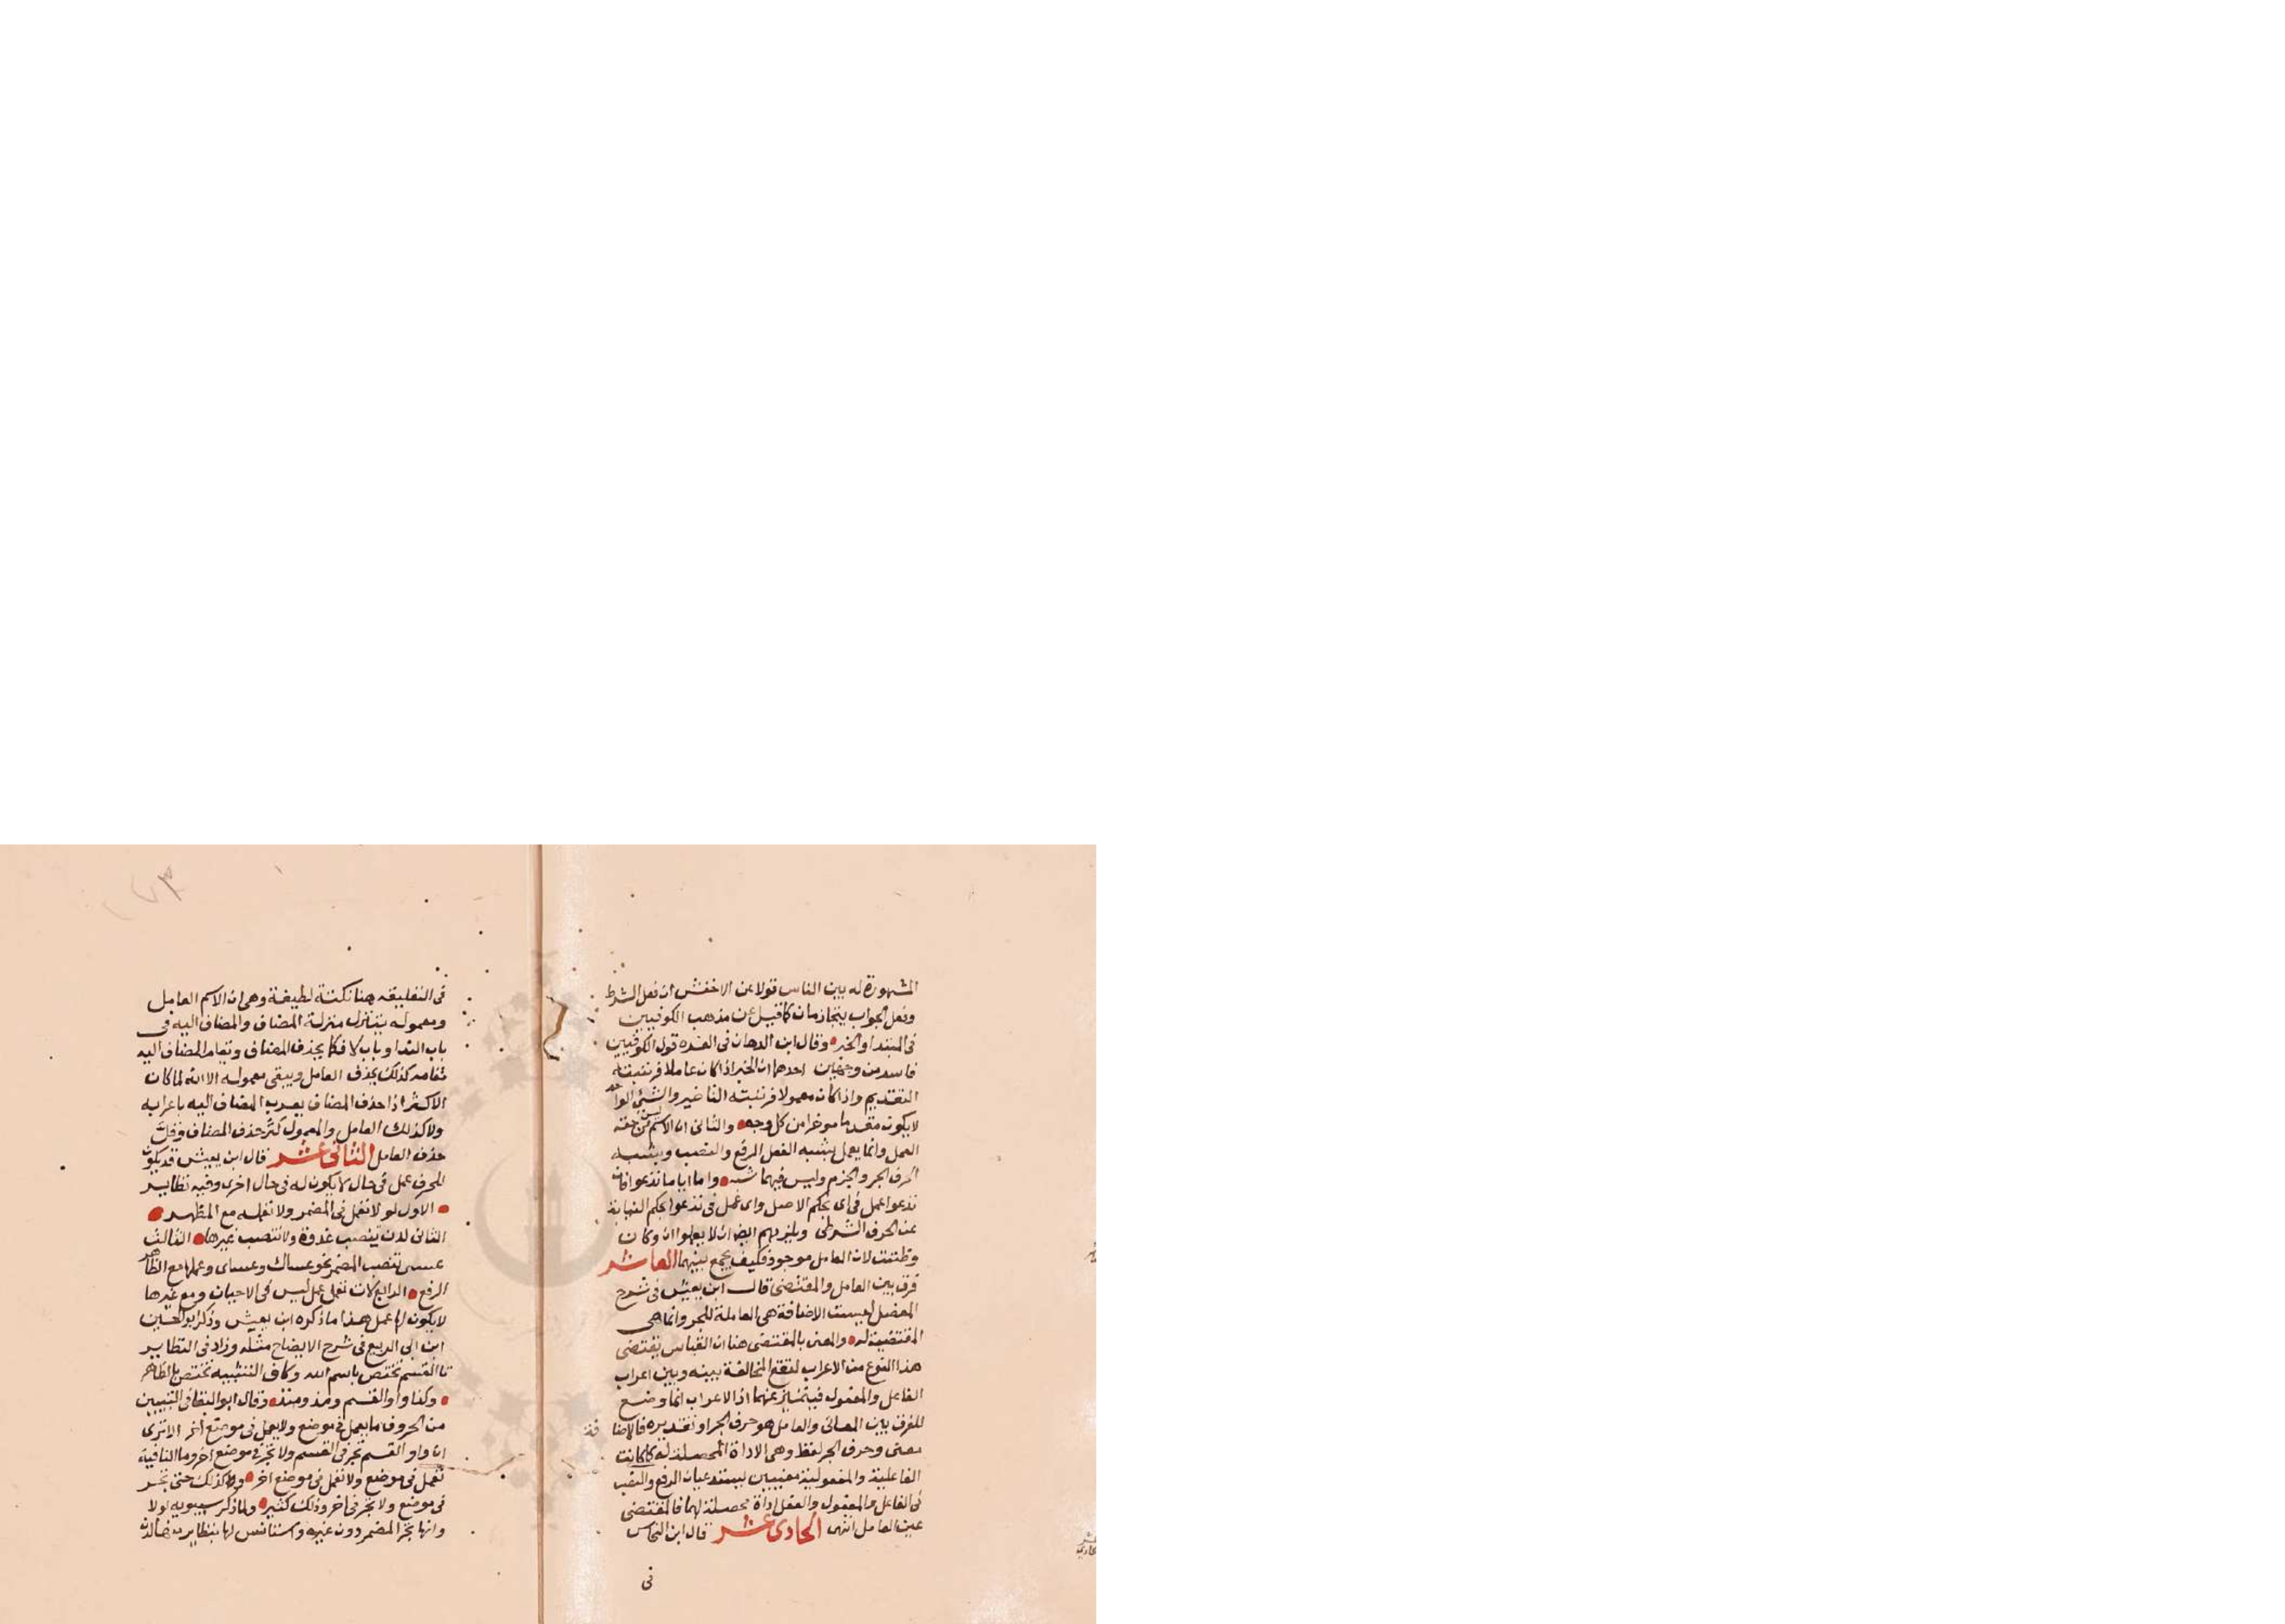 المشهورة له بين الناس قولا عن الاخفش ان فعل الشرط
وفعل الجواب يتجازمان كما قيل عن مذهب الكوفيين
فى المبتدا والخبر وقال ابن الدهان فى الغرة قول الكوفيين
فاسد من وجهين احدهما ان الخبر اذا كان عاملا فرتبته
التقديم واذا كان معمولا فرتبته التاخير والشئ الواحد
لا يكون مقدما موخرا من كل وجه والثانى ان الاسم ليس من حقه
العمل وانما يعمل بشبه الفعل الرفع والنصب وبشبه
الحرف الجر والجزم وليس فيهما شبه واما اياما تدعوا فان
تدعوا عمل فى اى بحكم الاصل واى عمل فى تدعوا بحكم النيابة
عن الحرف الشرطى ويلزمهم ايضا ان لا يعملوا ان وكان
وظننت لان العامل موجود فكيف يجمع بينهما العاشر
فرق بين العامل والمقتضى قال ابن يعيش فى شرح
المفصل ليست الاضافة هى العاملة للجر وانما هى
المقتضية له والمعنى بالمقتضى هنا ان القياس يقتضى
هذا النوع من الاعراب لتقع المخالفة بينه وبين اعراب
الفاعل والمفعول فيتميز عنهما اذ الاعراب انما وضع
للفرق بين المعانى والعامل هو حرف الجر او تقديره فالاضافة
معنى وحرف الجر لفظ وهى الاداة المحصلة له كما كانت
الفاعلية والمفعولية معنيين يستدعيان الرفع والنصب
فى الفاعل والمفعول والفعل اداة محصلة لهما فالمقتضى
غير العامل انتهى الحادى عشر قال ابن النحاس
فى
فى التعليقه هنا نكتة لطيفة وهى ان الاسم العامل
ومعموله يتنزل منزلة المضاف والمضاف اليه فى
باب الندا وباب لا فكما يحذف المضاف ويقام المضاف اليه
مقامه كذلك يحذف العامل ويبقى معموله الا انه لما كان
الاكثر اذا حذف المضاف يعرب المضاف اليه باعرابه
ولا كذلك العامل والمعمول كثر حذف المضاف وقل
حذف العامل الثانى عشر قال ابن يعيش قد يكون
للحرف عمل فى حال لا يكون له فى حال اخرى وفيه نظاير
الاول لولا تعمل فى المضمر ولا تعمله مع المظهر
الثانى لدن ينصب غدوة ولا تنصب غيرها الثالث
عسى تنصب المضمر نحو عساك وعساى وعملها مع الظاهر
الرفع الرابع لات تعمل عمل ليس فى الاحيان ومع غيرها
لا يكون لها عمل هذا ما ذكره ابن يعيش وذكر ابو الحسين
ابن ابى الربيع فى شرح الايضاح مثله وزاد فى النظاير
تا القسم تختص باسم الله وكاف التشبيه تختص بالظاهر
وكذا واو القسم ومذ ومنذ وقال ابو البقا فى التبيين
من الحروف ما يعمل فى موضع ولا يعمل فى موضع اخر الا ترى
ان واو القسم تجر فى القسم ولا تجر فى موضع اخر وما النافية
تعمل فى موضع ولا تعمل فى موضع اخر وكذلك حتى تجر
فى موضع ولا تجر فى اخر وذلك كثير ولما ذكر سيبويه لولا
وانها تجر المضمر دون غيره واستانس لها بنظاير